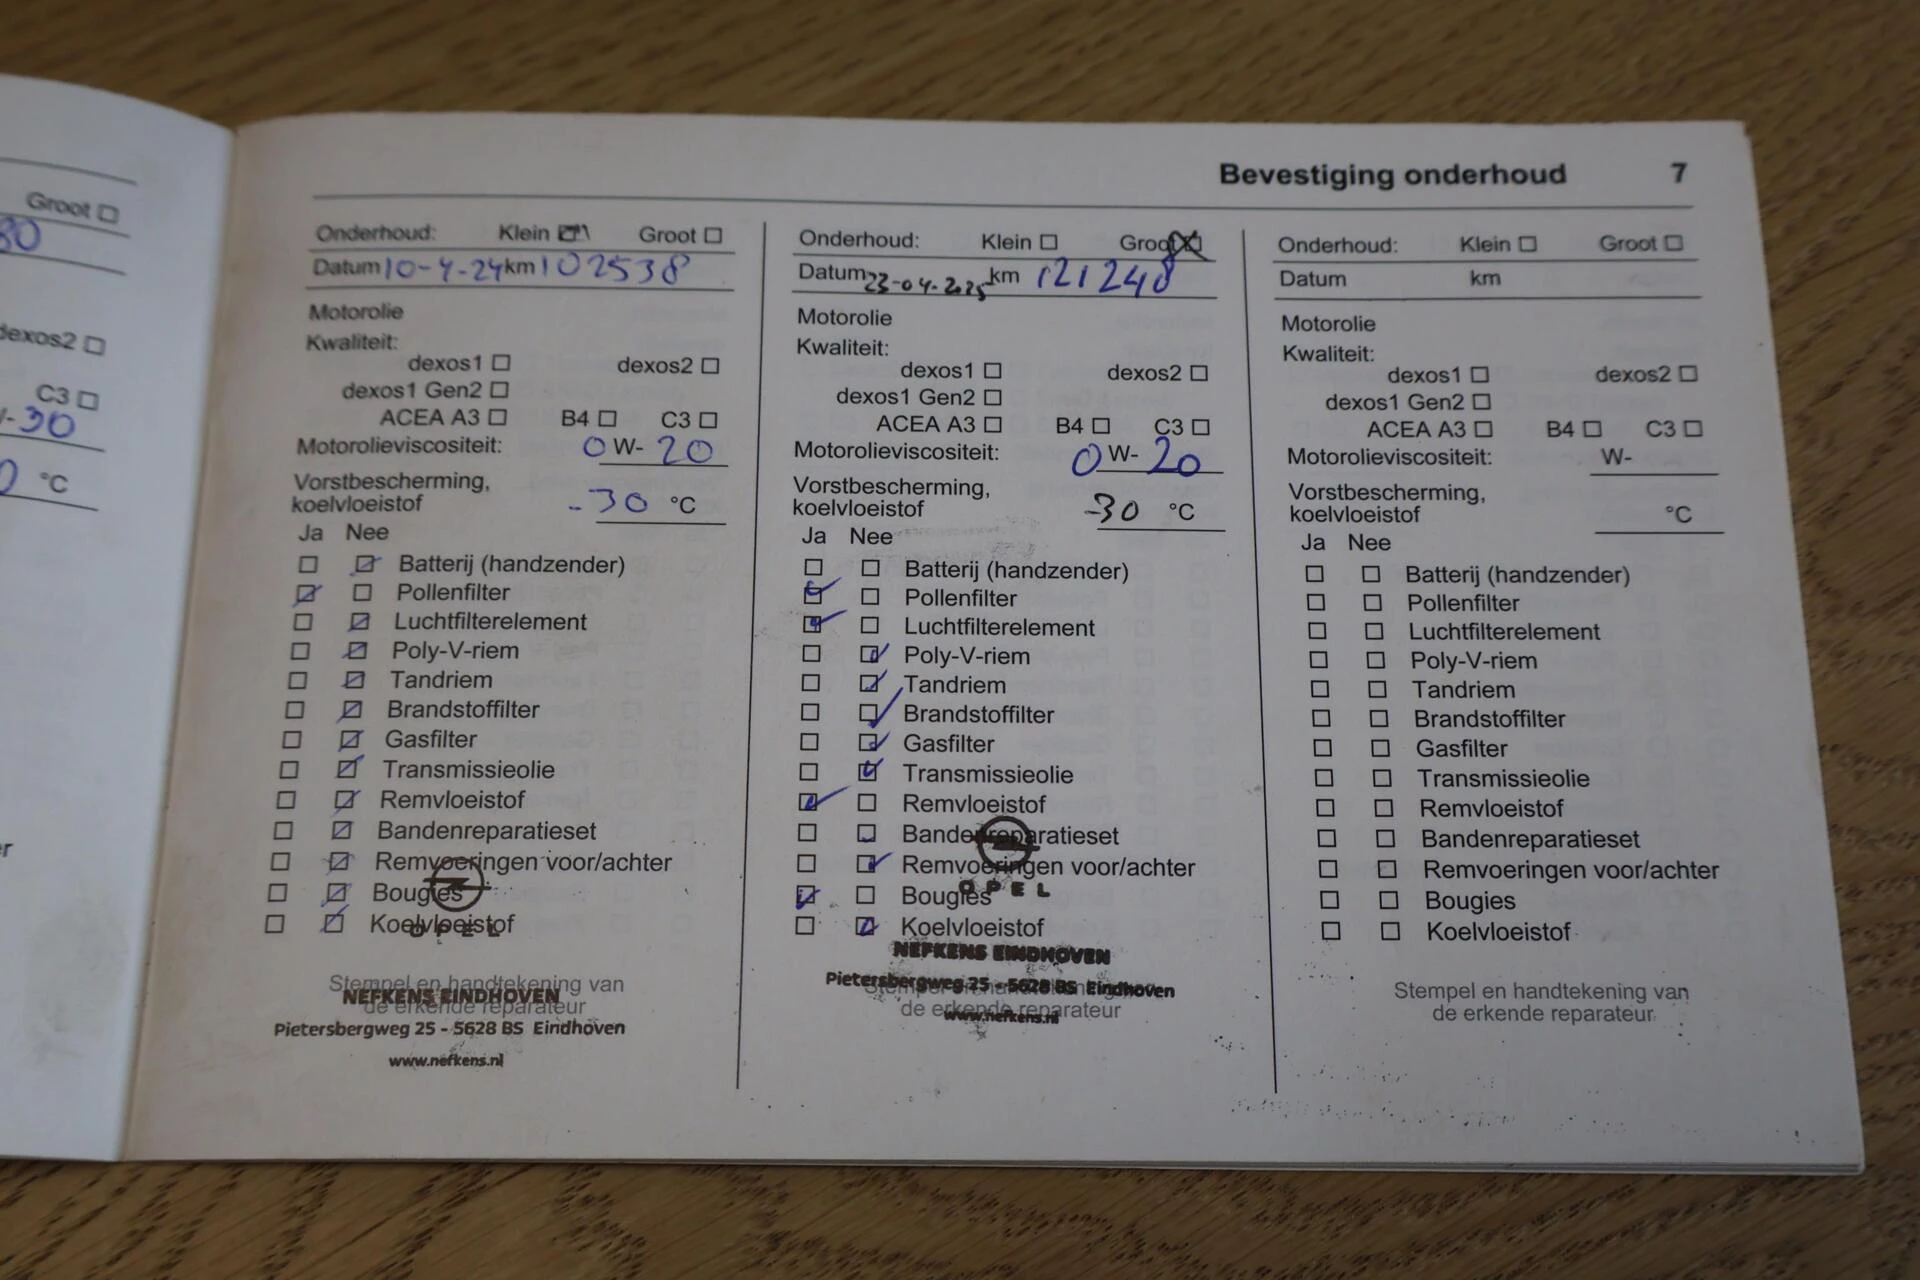 Groot ☐
80
dexos2 ☐
C3 ☐
W-30
0 °C
Bevestiging onderhoud 7
Onderhoud: Klein ☒ Groot ☐
Datum 10-4-24 km 102538
Motorolie
Kwaliteit:
dexos1 ☐ dexos2 ☐
dexos1 Gen2 ☐
ACEA A3 ☐ B4 ☐ C3 ☐
Motorolieviscositeit: 0 W- 20
Vorstbescherming,
koelvloeistof -30 °C
Ja Nee
☐ ☑ Batterij (handzender)
☑ ☐ Pollenfilter
☐ ☑ Luchtfilterelement
☐ ☑ Poly-V-riem
☐ ☑ Tandriem
☐ ☑ Brandstoffilter
☐ ☑ Gasfilter
☐ ☑ Transmissieolie
☐ ☑ Remvloeistof
☐ ☑ Bandenreparatieset
☐ ☑ Remvoeringen voor/achter
☐ ☑ Bougies
☐ ☑ Koelvloeistof
OPEL
Stempel en handtekening van
NEFKENS EINDHOVEN
de erkende reparateur
Pietersbergweg 25 - 5628 BS Eindhoven
www.nefkens.nl
Onderhoud: Klein ☐ Groot ☒
Datum 23-04-2025 km 121248
Motorolie
Kwaliteit:
dexos1 ☐ dexos2 ☐
dexos1 Gen2 ☐
ACEA A3 ☐ B4 ☐ C3 ☐
Motorolieviscositeit: 0 W- 20
Vorstbescherming,
koelvloeistof -30 °C
Ja Nee
☐ ☐ Batterij (handzender)
☑ ☐ Pollenfilter
☑ ☐ Luchtfilterelement
☐ ☑ Poly-V-riem
☐ ☑ Tandriem
☐ ☑ Brandstoffilter
☐ ☑ Gasfilter
☐ ☑ Transmissieolie
☑ ☐ Remvloeistof
☐ ☑ Bandenreparatieset
☐ ☑ Remvoeringen voor/achter
OPEL
☑ ☐ Bougies
☐ ☑ Koelvloeistof
NEFKENS EINDHOVEN
Pietersbergweg 25 - 5628 BS Eindhoven
Stempel en handtekening van
de erkende reparateur
www.nefkens.nl
Onderhoud: Klein ☐ Groot ☐
Datum km
Motorolie
Kwaliteit:
dexos1 ☐ dexos2 ☐
dexos1 Gen2 ☐
ACEA A3 ☐ B4 ☐ C3 ☐
Motorolieviscositeit: W-
Vorstbescherming,
koelvloeistof °C
Ja Nee
☐ ☐ Batterij (handzender)
☐ ☐ Pollenfilter
☐ ☐ Luchtfilterelement
☐ ☐ Poly-V-riem
☐ ☐ Tandriem
☐ ☐ Brandstoffilter
☐ ☐ Gasfilter
☐ ☐ Transmissieolie
☐ ☐ Remvloeistof
☐ ☐ Bandenreparatieset
☐ ☐ Remvoeringen voor/achter
☐ ☐ Bougies
☐ ☐ Koelvloeistof
Stempel en handtekening van
de erkende reparateur